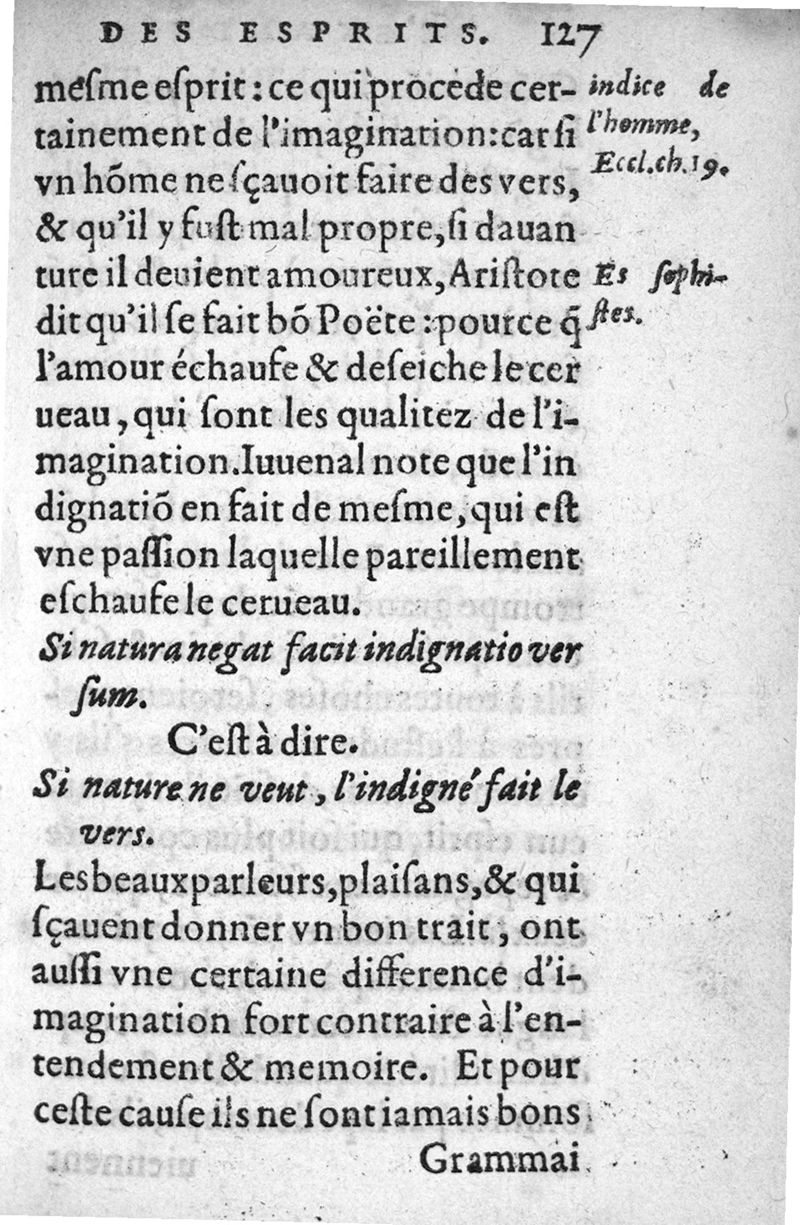 DES ESPRITS. 127
meſme eſprit : ce qui procede cer-
tainement de l'imagination: car ſi
vn hõme ne ſçauoit faire des vers,
& qu'il y fuſt mal propre, ſi dauan
ture il deuient amoureux, Ariſtote
dit qu'il ſe fait bõ Poëte : pource q̃
l'amour échaufe & deſeiche le cer
ueau, qui ſont les qualitez de l'i-
magination. Iuuenal note que l'in
dignatiõ en fait de meſme, qui eſt
vne paſſion laquelle pareillement
eſchaufe le cerueau.
Si natura negat facit indignatio ver
ſum.
C'eſt à dire.
Si nature ne veut, l'indigné fait le
vers.
Les beaux parleurs, plaiſans, & qui
ſçauent donner vn bon trait, ont
auſſi vne certaine difference d'i-
magination fort contraire à l'en-
tendement & memoire. Et pour
ceſte cauſe ils ne ſont iamais bons
Grammai
indice de
l'homme,
Eccl. ch. 19.
Es ſophi-
ſtes.